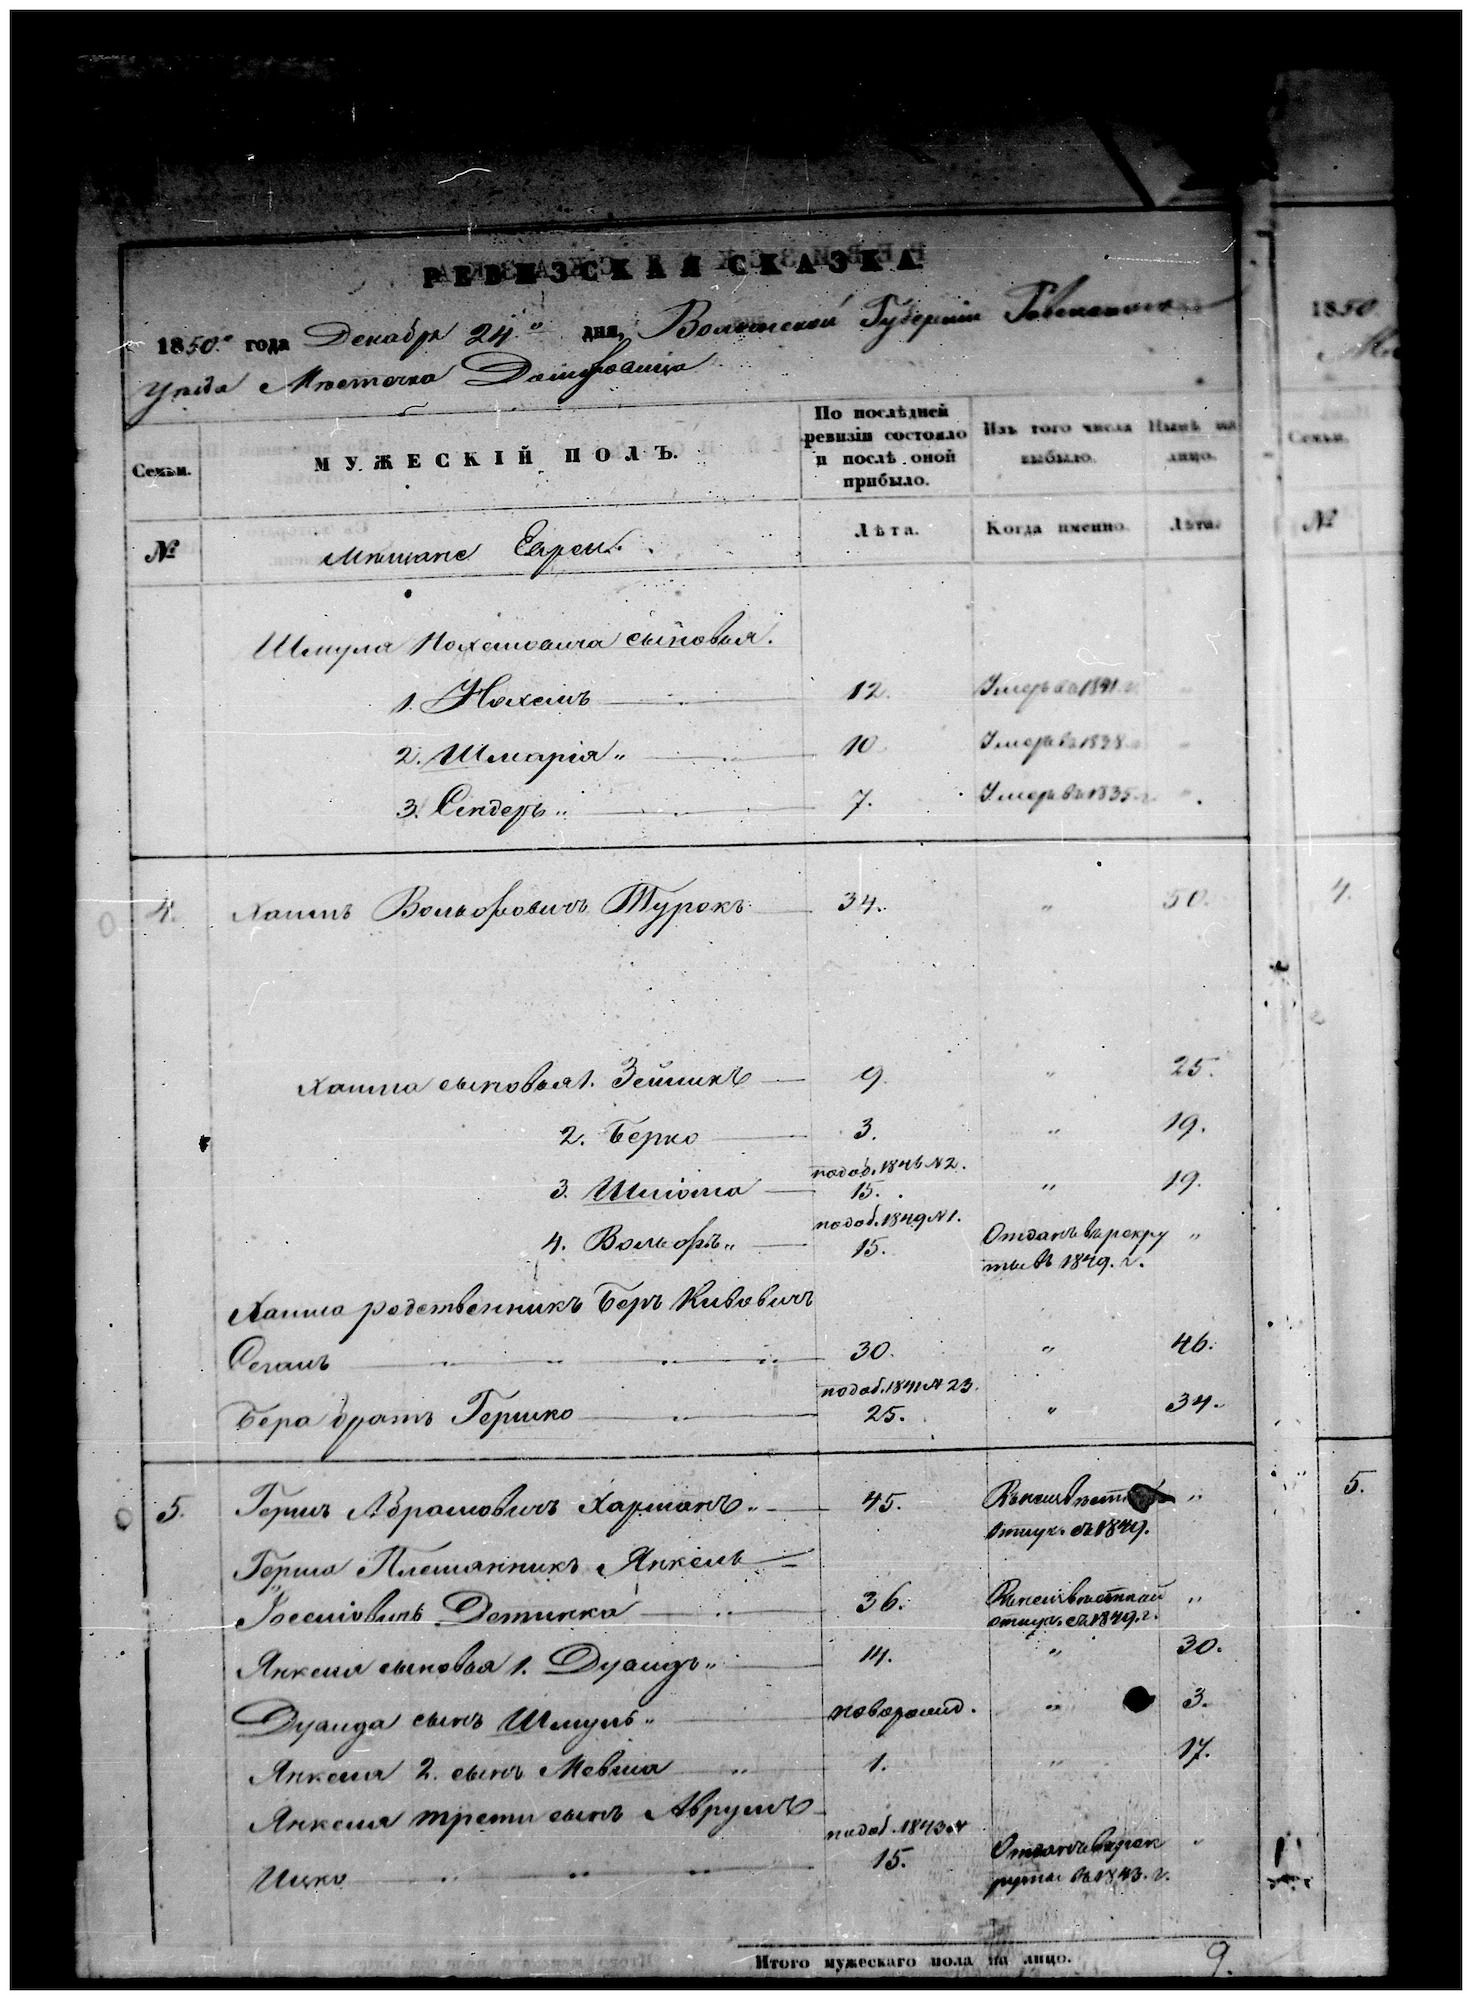 РЕВИЗСКАЯ СКАЗКА.
1850го года Декабря 24го дня, Волынской Губерніи Ровенскаго
Уѣзда Мѣстечка Домбровица
Семьи.
МУЖЕСКІЙ ПОЛЪ.
По послѣдней
ревизіи состояло
и послѣ оной
прибыло.
Изъ того числа
выбыло.
Нынѣ на
лицо.
№
Мѣщане Евреи.
Лѣта.
Когда именно.
Лѣта.
Шмуля Нохемовича сыновья.
1. Нохемъ 12. Умеръ въ 1841. г. "
2. Шмарія " 10 Умеръ въ 1838. г "
3. Сендеръ " 7. Умеръ въ 1835. г. "
4. Хаимъ Вольфовичъ Турокъ 34. " 50.
Хаима сыновья 1. Зейликъ 9. " 25.
2. Берко 3. " 19.
3. Шліома подоб. 1846 №2. 15. " 19.
4. Вольфъ " подоб. 1849 №1. 15. Отданъ въ рекру "
ты въ 1849. г.
Хаима родственникъ Беръ Кивовичъ
Сегаль 30. " 46.
Бера братъ Гершко подоб. 1841 № 23. 25. " 34.
5. Гершъ Абрамовичъ Харманъ " 45. Въ неизвѣстн "
отлуч. съ 1849.
Герша Племянникъ Янкель
Іоселіовичъ Детинка 36. Въ неизвѣстной "
отлуч. съ 1849. г.
Янкеля сыновья 1. Дуаидъ " 14. " 30.
Дуаида сынъ Шмуль " новорожд. " 3.
Янкеля 2. сынъ Мевша 1. " 17.
Янкеля трети сынъ Аврумъ
Ицко подоб. 1843 15. Отданъ въ рек "
руты въ 1843. г.
Итого мужескаго пола на лицо. 9.
1850
Семьи.
№
4.
5.